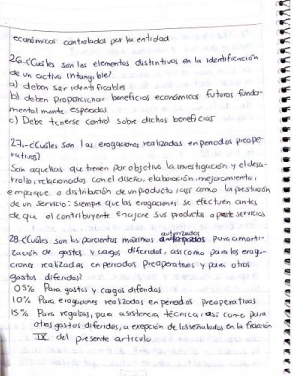 económicos controlados por la entidad
26.-¿Cuáles son los elementos distintivos en la identificación
de un activo intangible?
a) deben ser identificables
b) deben proporcionar beneficios económicos futuros fundo-
mentalmente esperados
c) Debe tenerse control sobre dichos beneficios
27.-¿Cuáles son las erogaciones realizadas en periodos preope-
rativos?
Son aquellas que tienen por objetivo la investigación y el desa-
rrollo, relacionados con el diseño, elaboración, mejoramiento,
empaque o distribución de un producto, así como la prestación
de un servicio: siempre que las erogaciones se efectúen antes
de que el contribuyente enajene sus productos o preste servicios
28.¿Cuáles son los porcentos máximos autorizados para amorti-
zación de gastos y cargos diferidos, así como para las eroga-
ciones realizadas en periodos preoperativos y para otros
gastos diferidos?
05% Para gastos y cargos diferidos
10% Para erogaciones realizadas en periodos preoperativos
15% Para regalías, para asistencia técnica, así como para
otros gastos diferidos, a excepción de los señalados en la fracción
IV del presente artículo